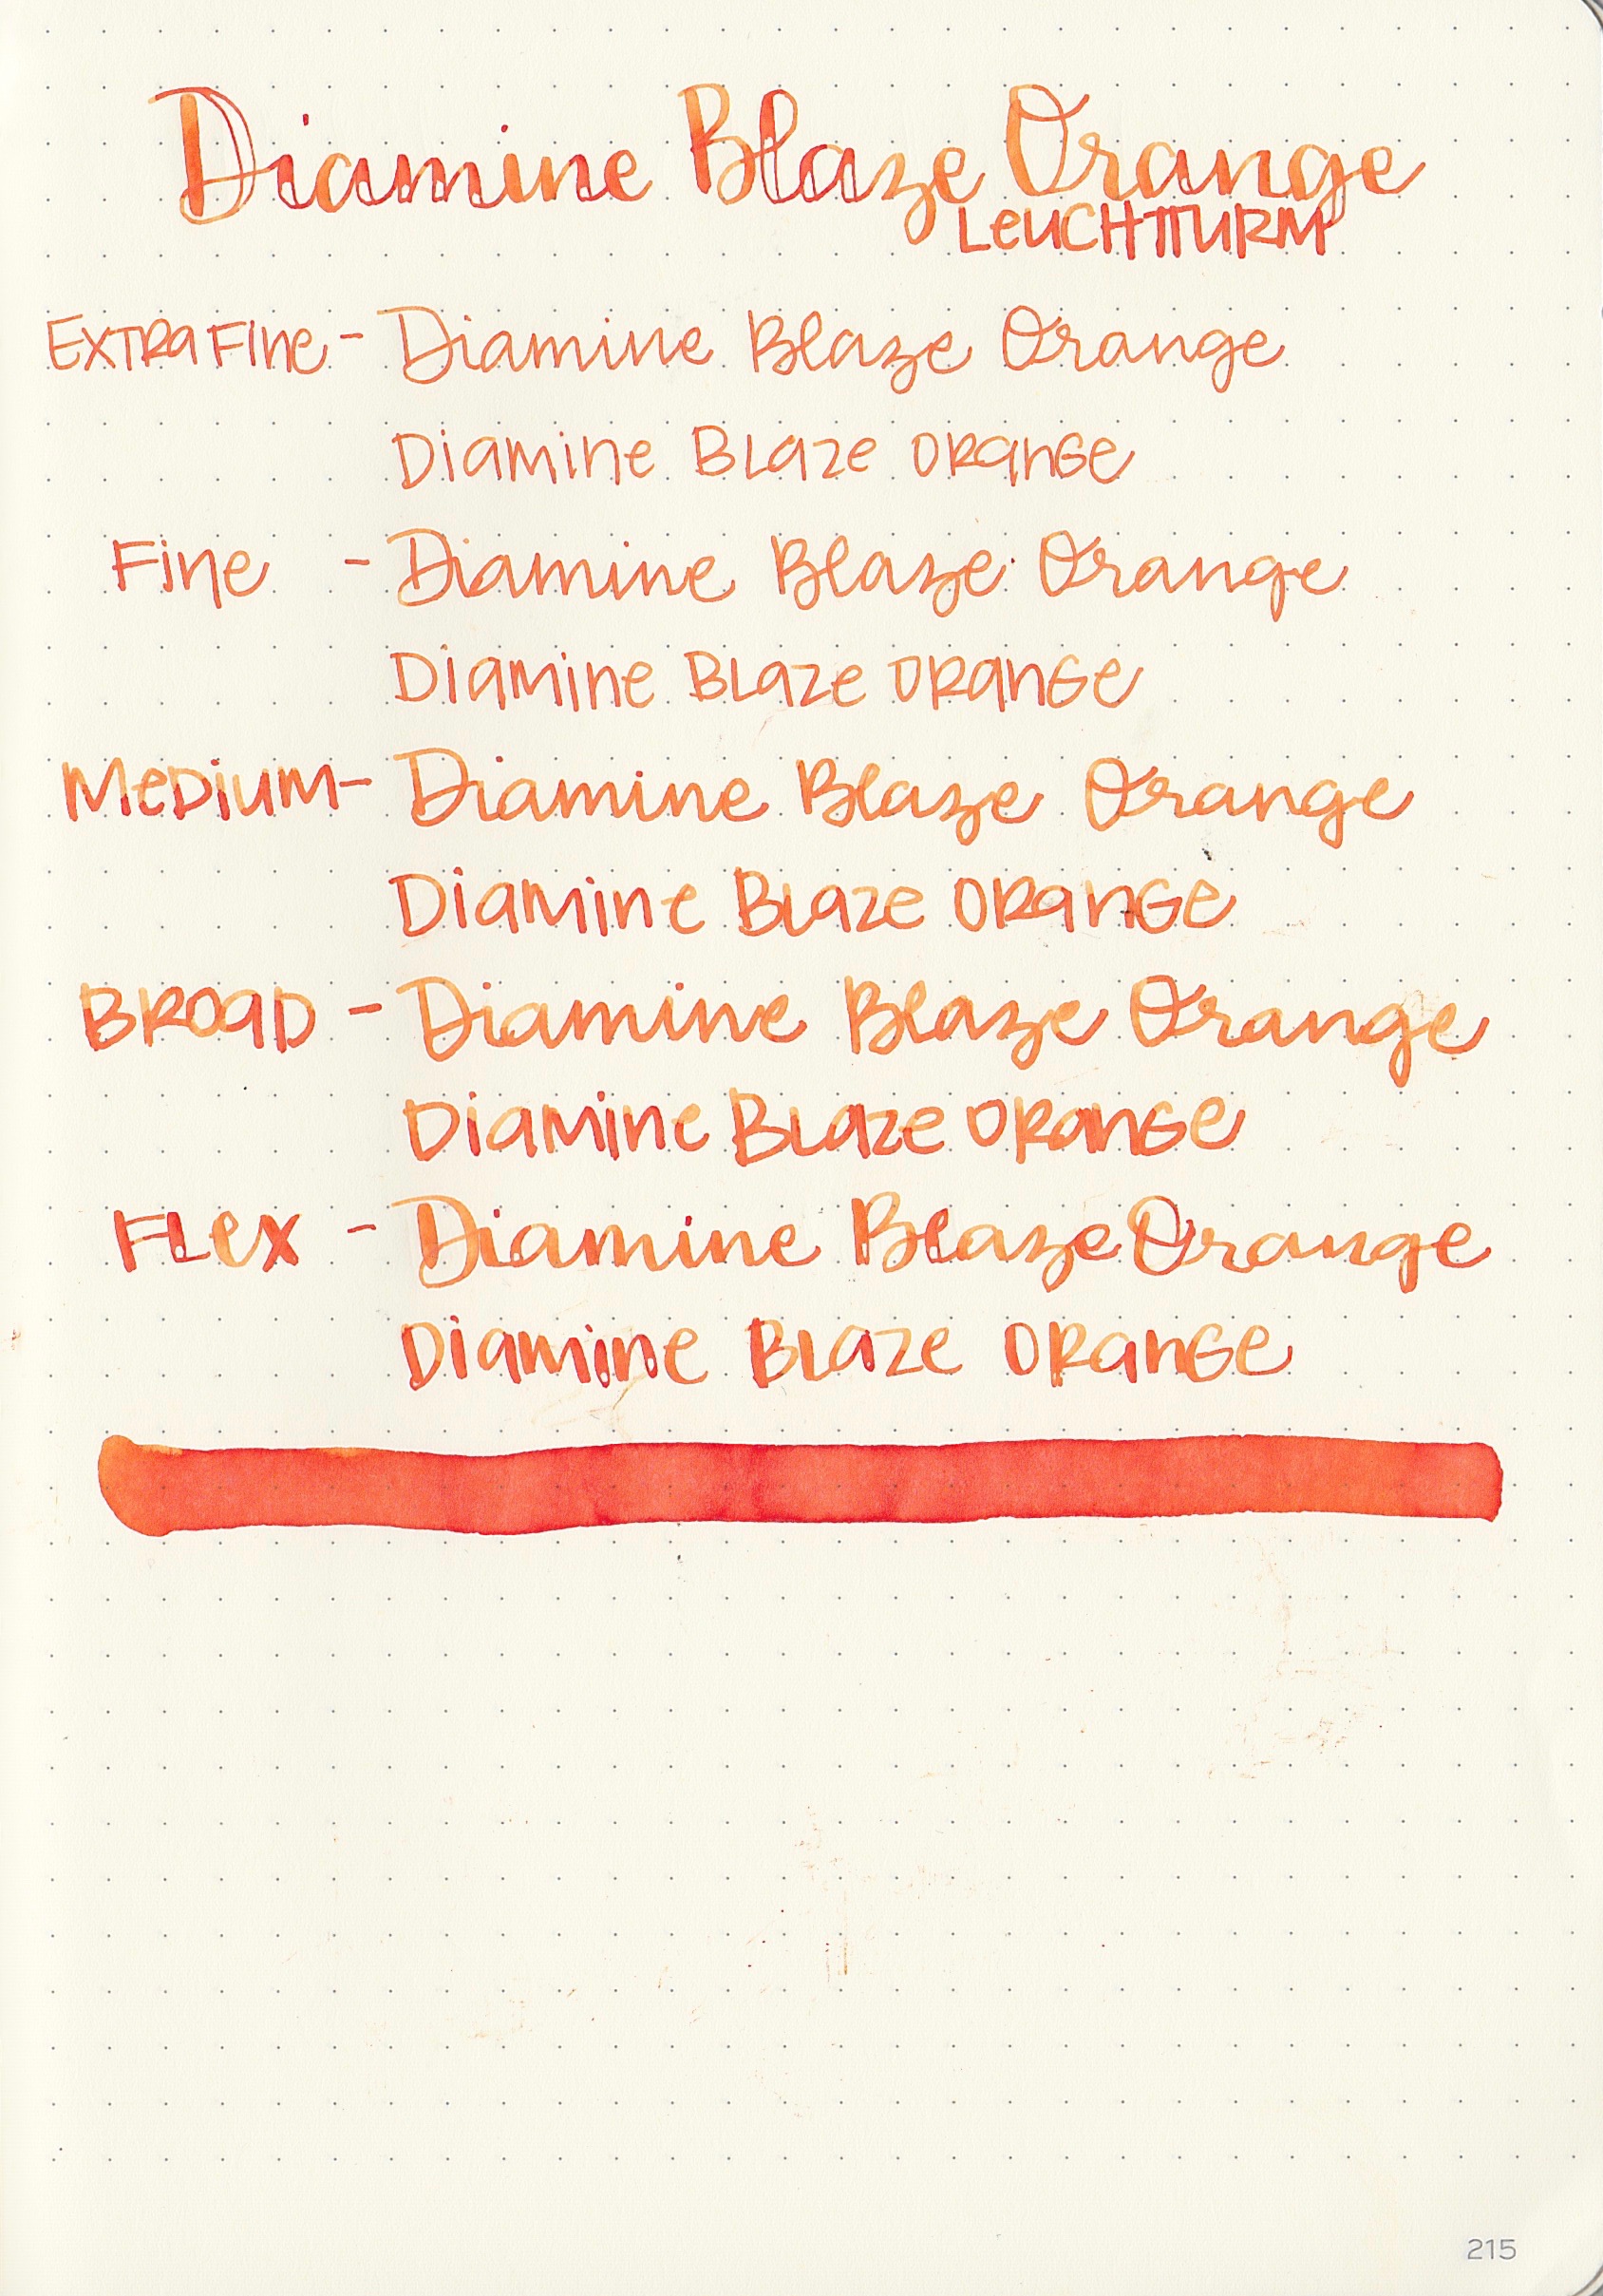 Diamine Blaze Orange
LEUCHTTURM
EXTRA FINE - Diamine Blaze Orange
Diamine Blaze Orange
Fine - Diamine Blaze Orange
Diamine Blaze Orange
Medium - Diamine Blaze Orange
Diamine Blaze Orange
BROAD - Diamine Blaze Orange
Diamine Blaze Orange
FLEX - Diamine Blaze Orange
Diamine Blaze Orange
215